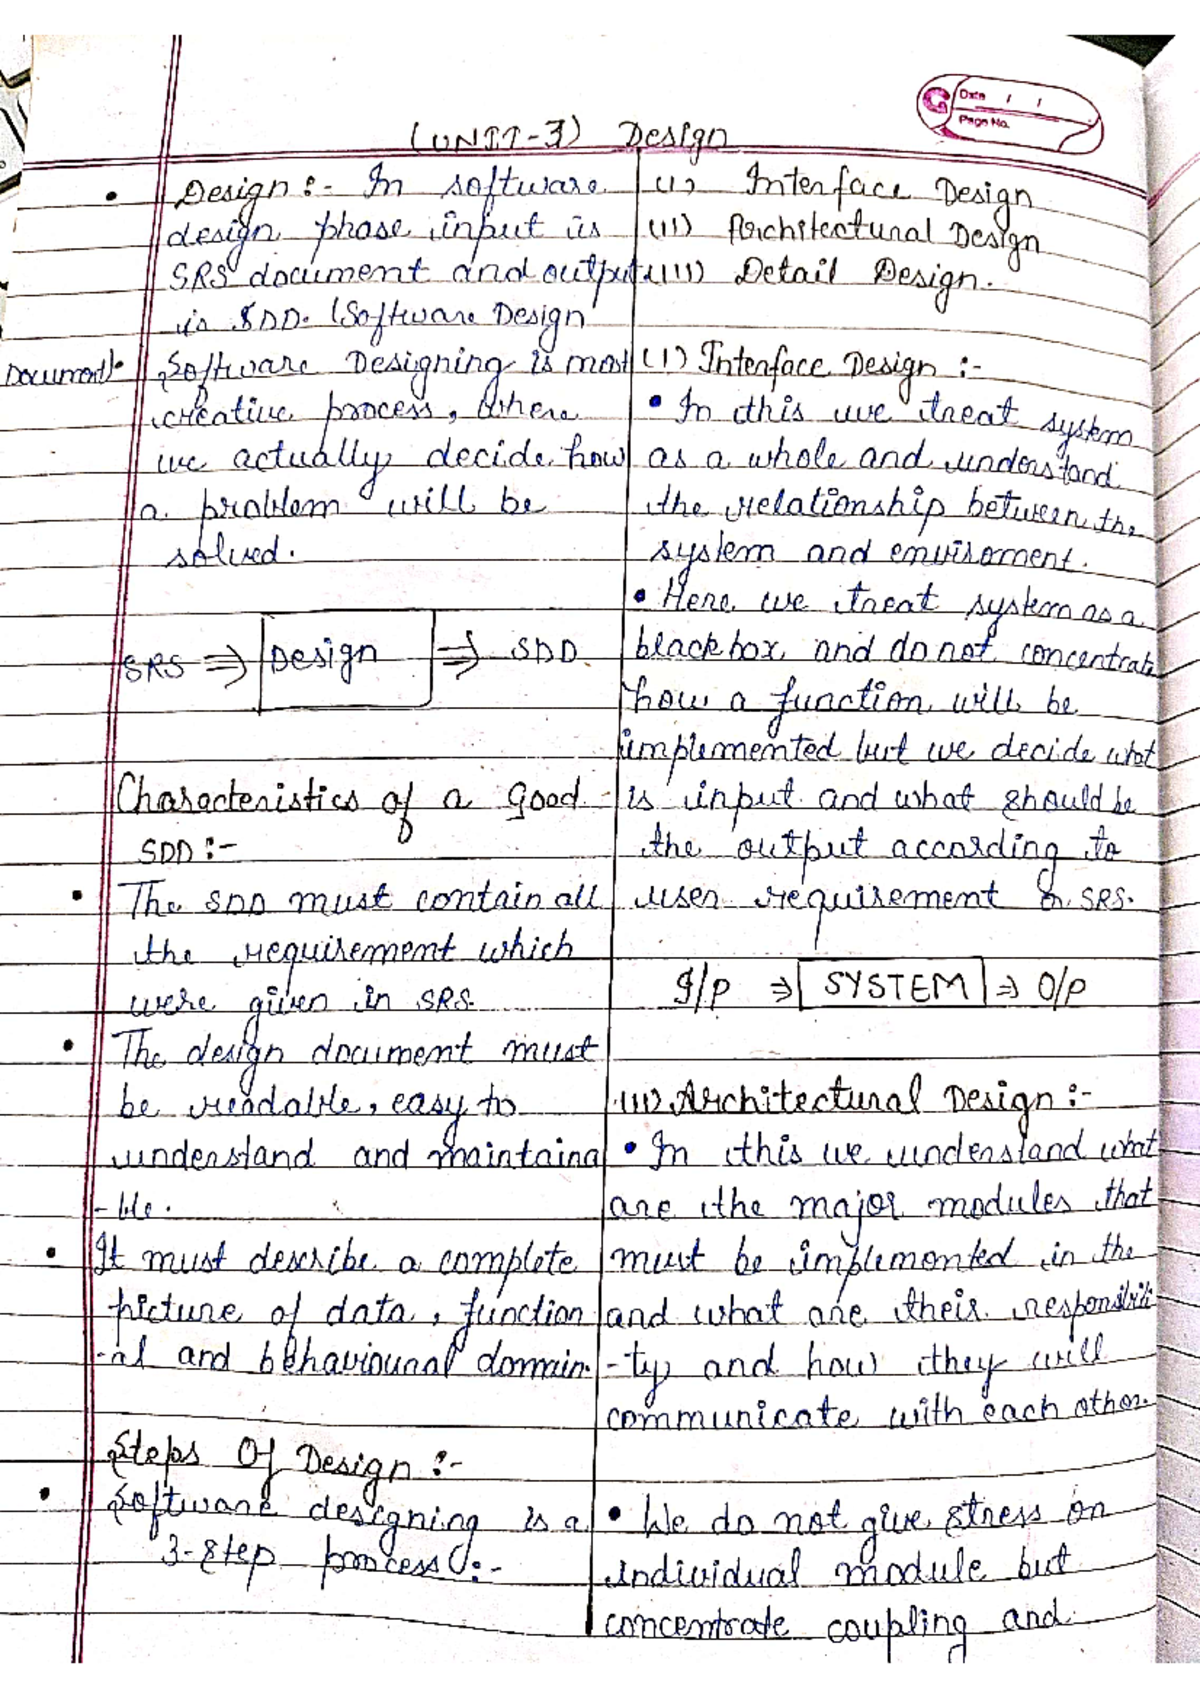 Date / /
Page No.
(UNIT-3) Design
• Design :- In software
design phase input is
SRS document and output
is SDD. (Software Design
Document).
Software Designing is most
creative process, where
we actually decide how
a problem will be
solved.
SRS ⇒ Design ⇒ SDD
Characteristics of a good
SDD :-
• The SDD must contain all
the requirement which
were given in SRS.
• The design document must
be readable, easy to
understand and maintaina
-ble.
• It must describe a complete
picture of data, function
-al and behavioural domain.
Steps Of Design :-
• Software designing is a
3-step process :-
(I) Interface Design
(II) Architectural Design
(III) Detail Design.
(I) Interface Design :-
• In this we treat system
as a whole and understand
the relationship between the
system and enviroment.
• Here we treat system as a
black box and do not concentrate
how a function will be
implemented but we decide what
is input and what should be
the output according to
user requirement or SRS.
I/P ⇒ SYSTEM ⇒ O/P
(II) Architectural Design :-
• In this we understand what
are the major modules that
must be implemented in the
and what are their responsibili
-ty and how they will
communicate with each other.
• We do not give stress on
individual module but
concentrate coupling and